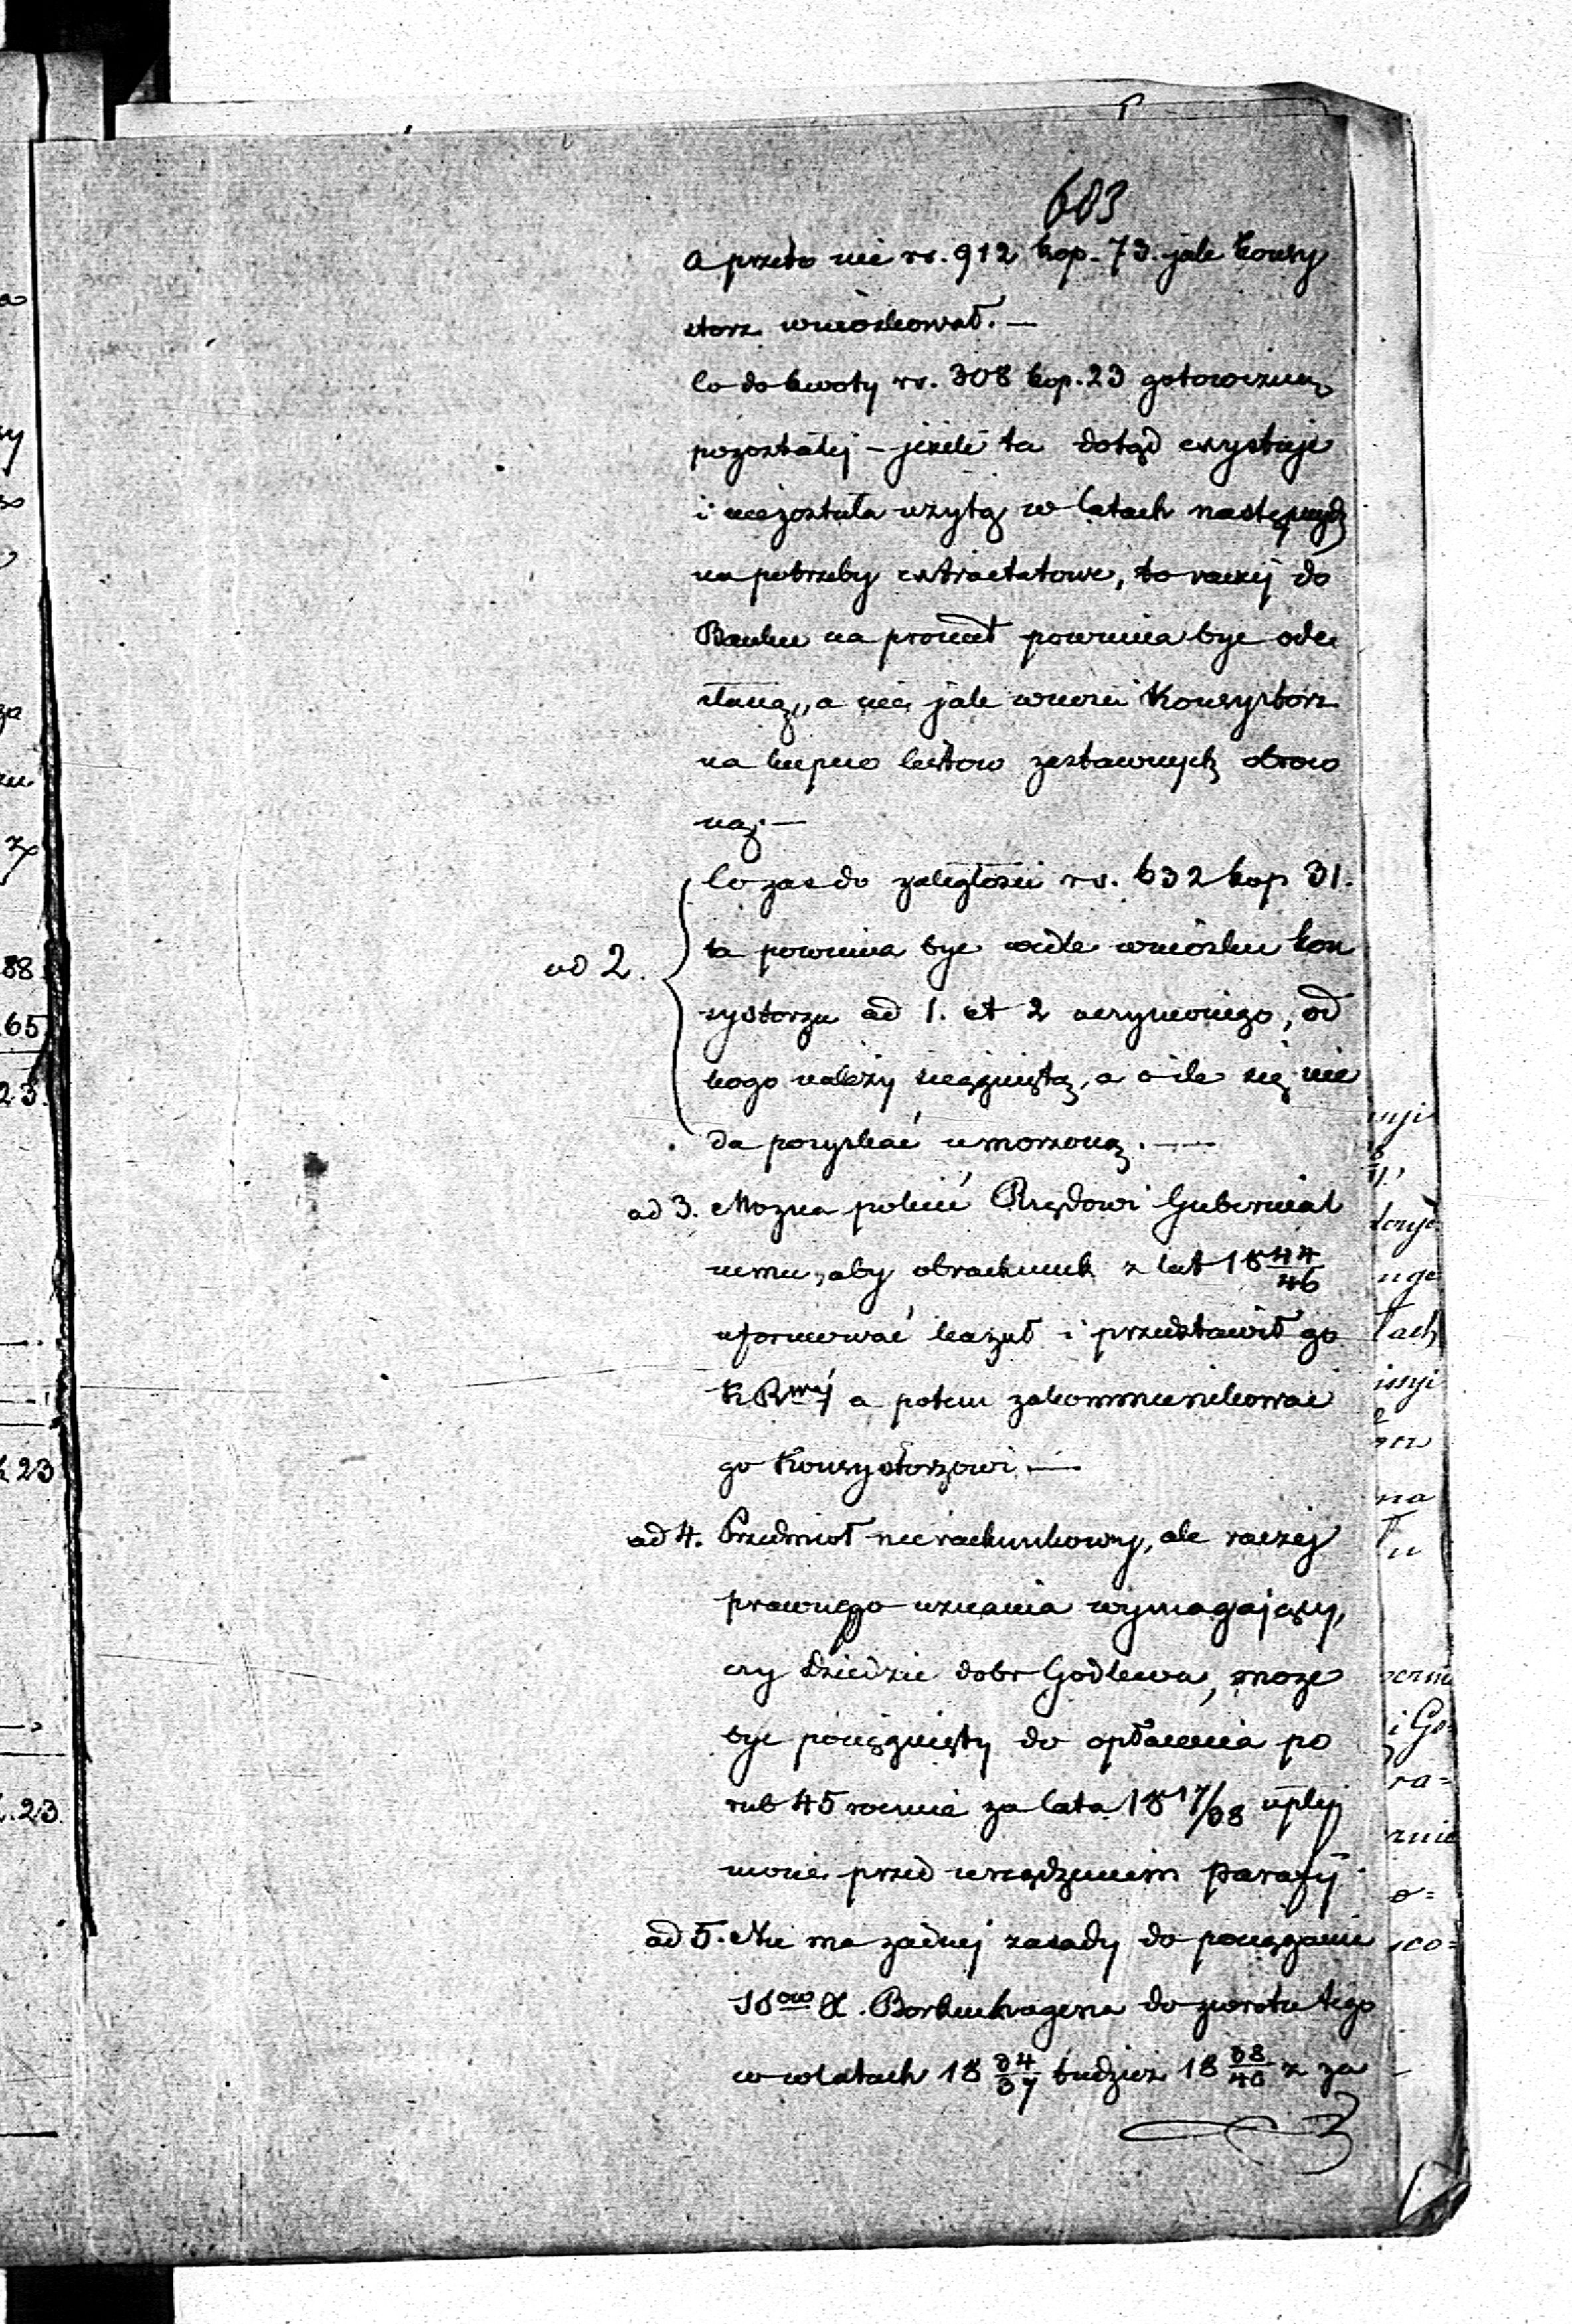 603
a przeto nie rs. 912 kop. 73. jak Konsy
storz wnioskował. —
Co do kwoty rs. 308 kop. 23 gotowizną
pozostałej – jeżeli ta dotąd exystuje
i niezostała użytą w latach następnych
na potrzeby extraetatowe, to raczej do
Banku na procent powinna być ode
słaną, a nie jak wnosi Konsystorz
na kupno listow zastawnych obroco
ną. —
ad 2. Co zas do zaległości rs. 632 kop 31.
ta powinna być wedle wniosku Kon
systorza ad 1. et 2 uczynionego, od
kogo należy ściągniętą, a o ile się nie
da pozyskać umorzoną. —
ad 3. Można polecić Rządowi Gubernial
nemu, aby obrachunek z lat 18 44/46
uformować kazał i przedstawił go
KRwej a potem zakommunikować
go Konsystorzowi —
ad 4. Przedmiot nierachunkowy, ale raczej
prawnego uznania wymagający,
czy dziedzic dobr Godlewa, może
być pociągnięty do opłacenia po
rub 45 rocznie za lata 18 17/38 upły
nione przed urządzeniem parafij
ad 5. Nie ma żadnej zasady do pociągania
SSów X. Borkenhagena do zwrotu tego
co w latach 18 34/37 tudzież 18 38/40 z za
88
65
23.
23
23.